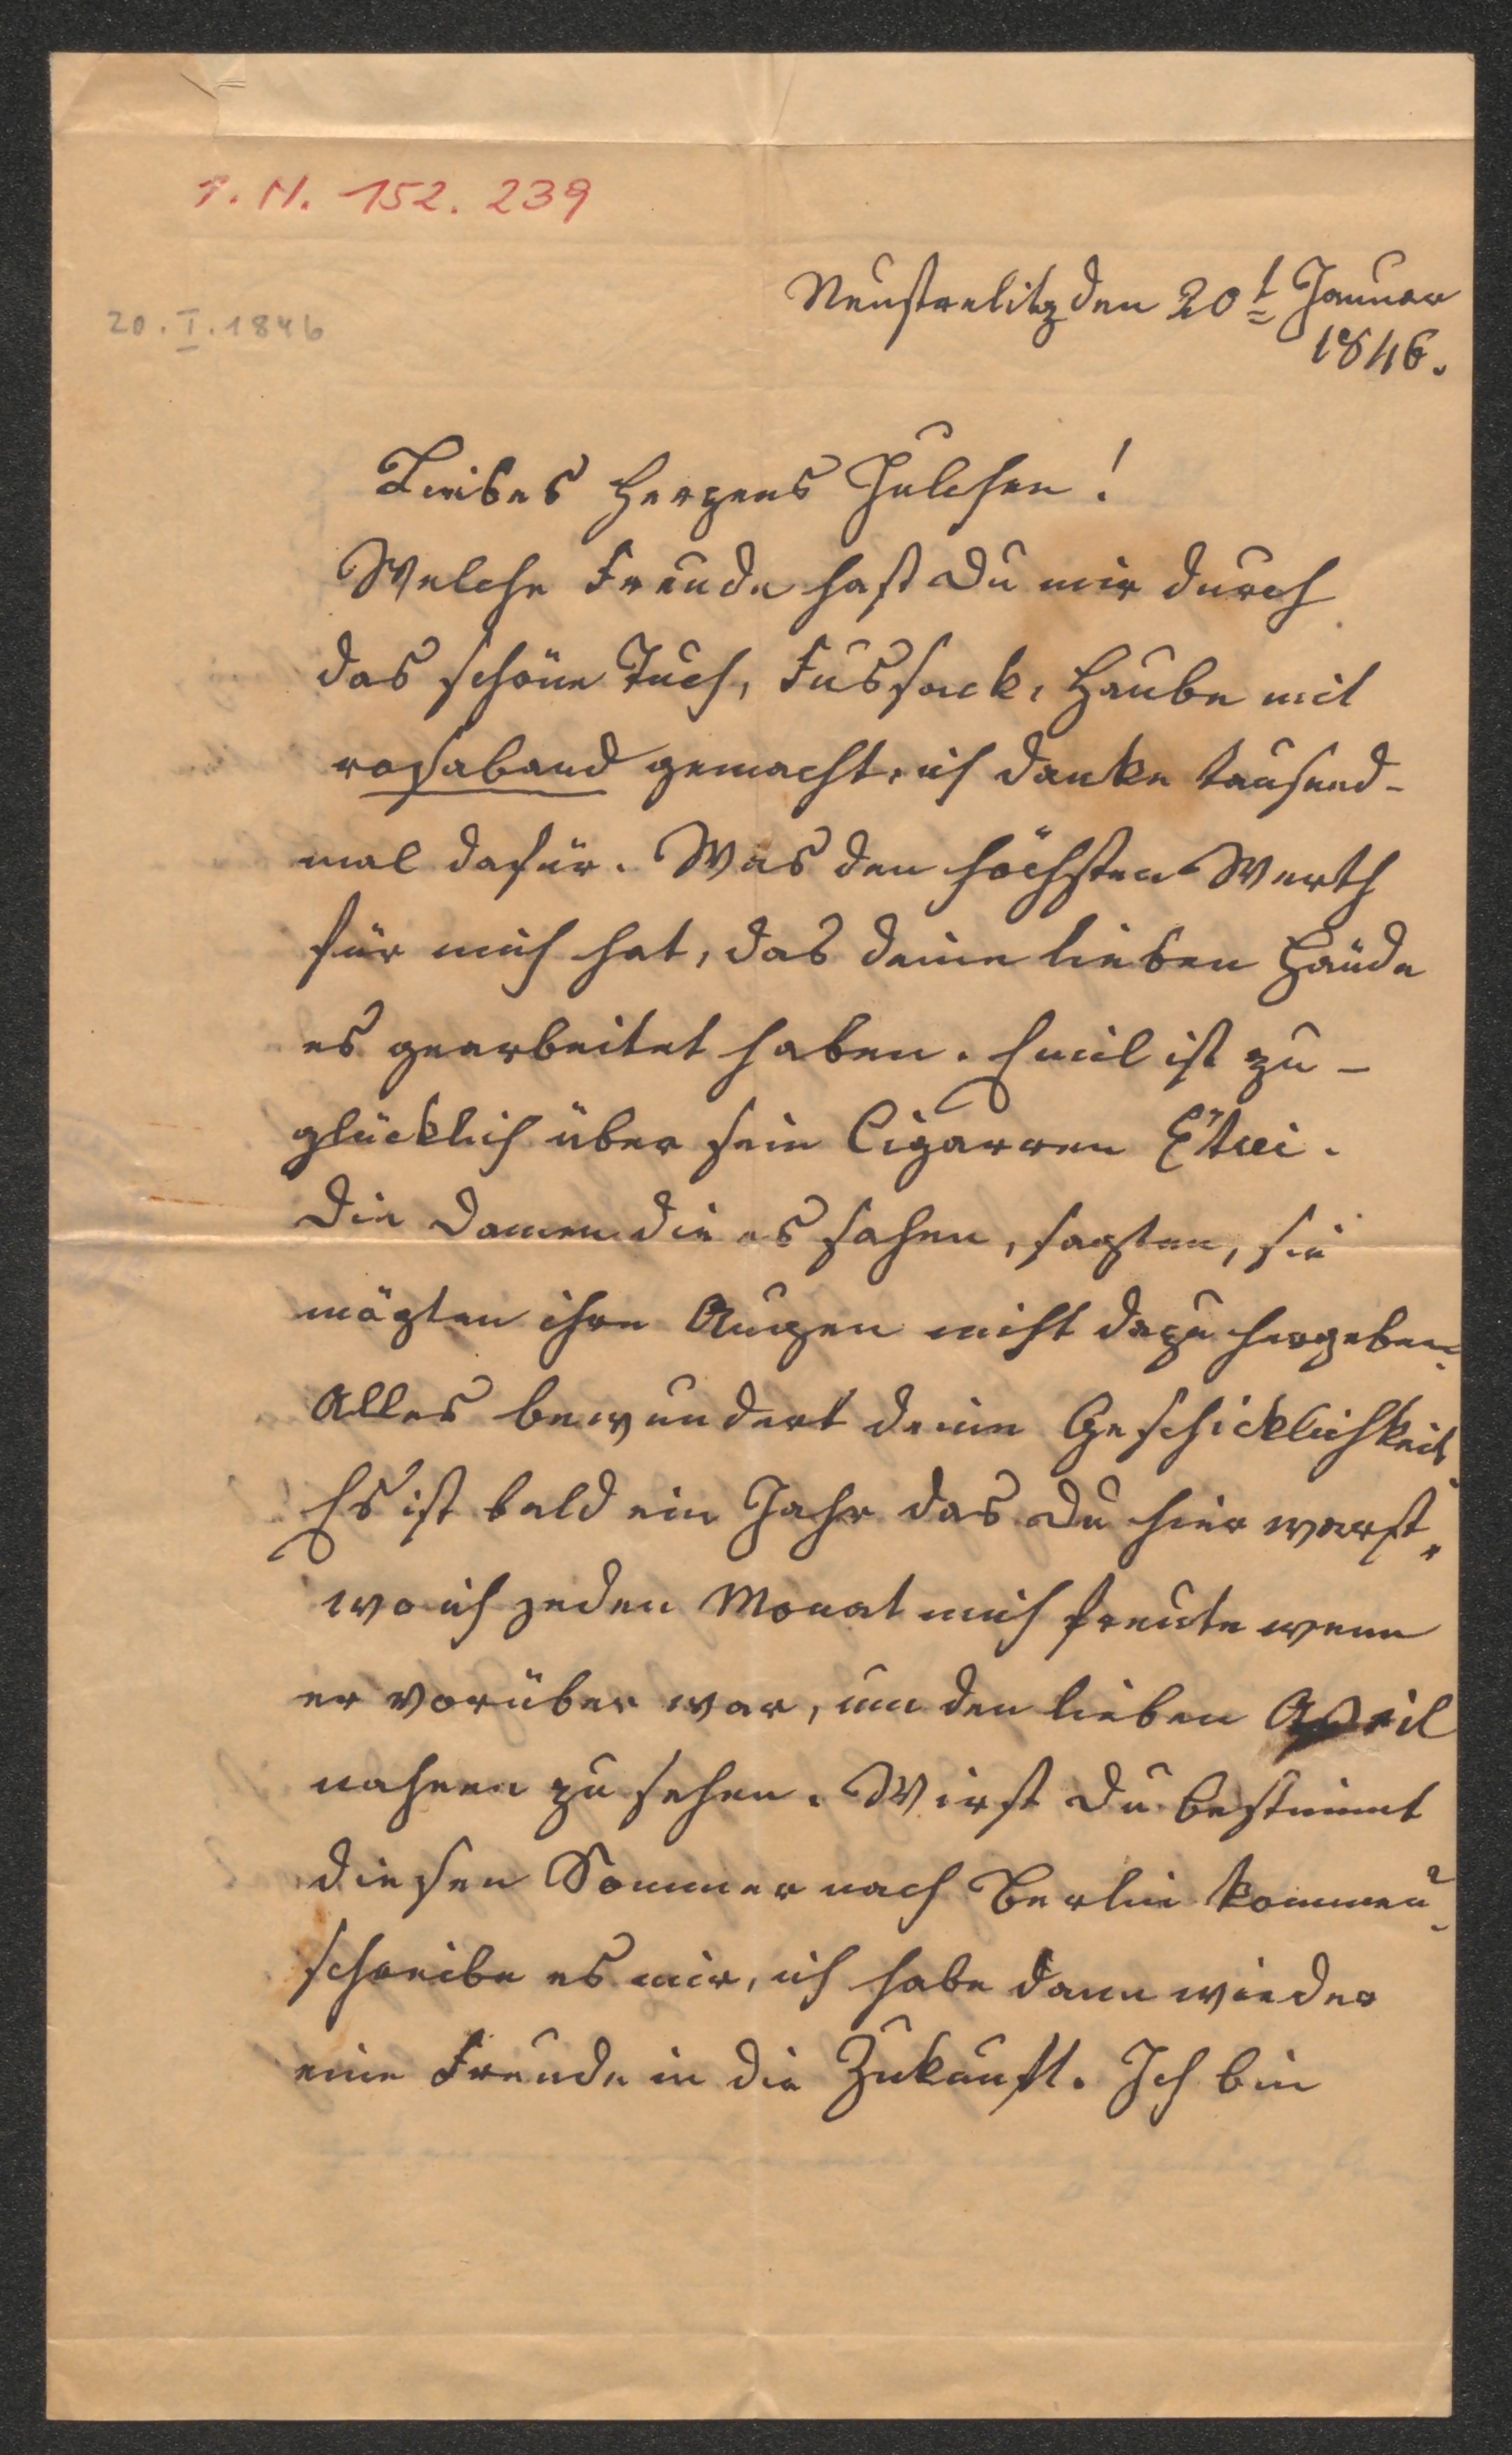 I. N. 152. 239
Neustrelitz den 20t Januar
1846.
20. I. 1846
Liebes Herzens Julchen!
Welche Freude hast Du mir durch
das schöne Tuch, Fussack, Haube mit
rosaband gemacht, ich danke tausend-
mal dafür. Was den höchsten Werth
für mich hat, das deine lieben Hände
es gearbeitet haben. Emil ist zu-
glücklich über sein Cigarren Etui.
Die Damen die es sahen, sagten, sie
mögten ihre Augen nicht dazu hergeben.
Alles bewundert deine Geschicklichkeit.
Es ist bald ein Jahr das Du hier warst,
wo ich jeden Monat mich freute wenn
er vorüber war, um den lieben April
nahen zu sehen. Wirst Du bestimmt
diesen Sommer nach Berlin kommen?
schreibe es mir, ich habe dann wieder
eine Freude in die Zukunft. Ich bin